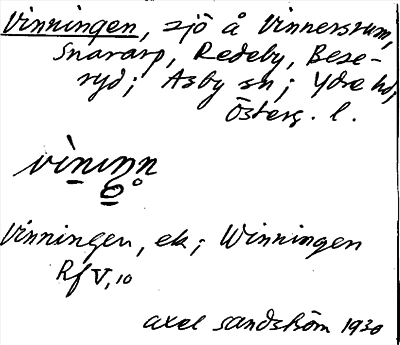 Vinningen, sjö å Vinnersrum,
Snararp, Redeby, Bese-
ryd; Asby sn; Ydre hd,
Österg. l.
Vinningen, ek; Winningen
Rf V, 10
Axel Sandström 1930